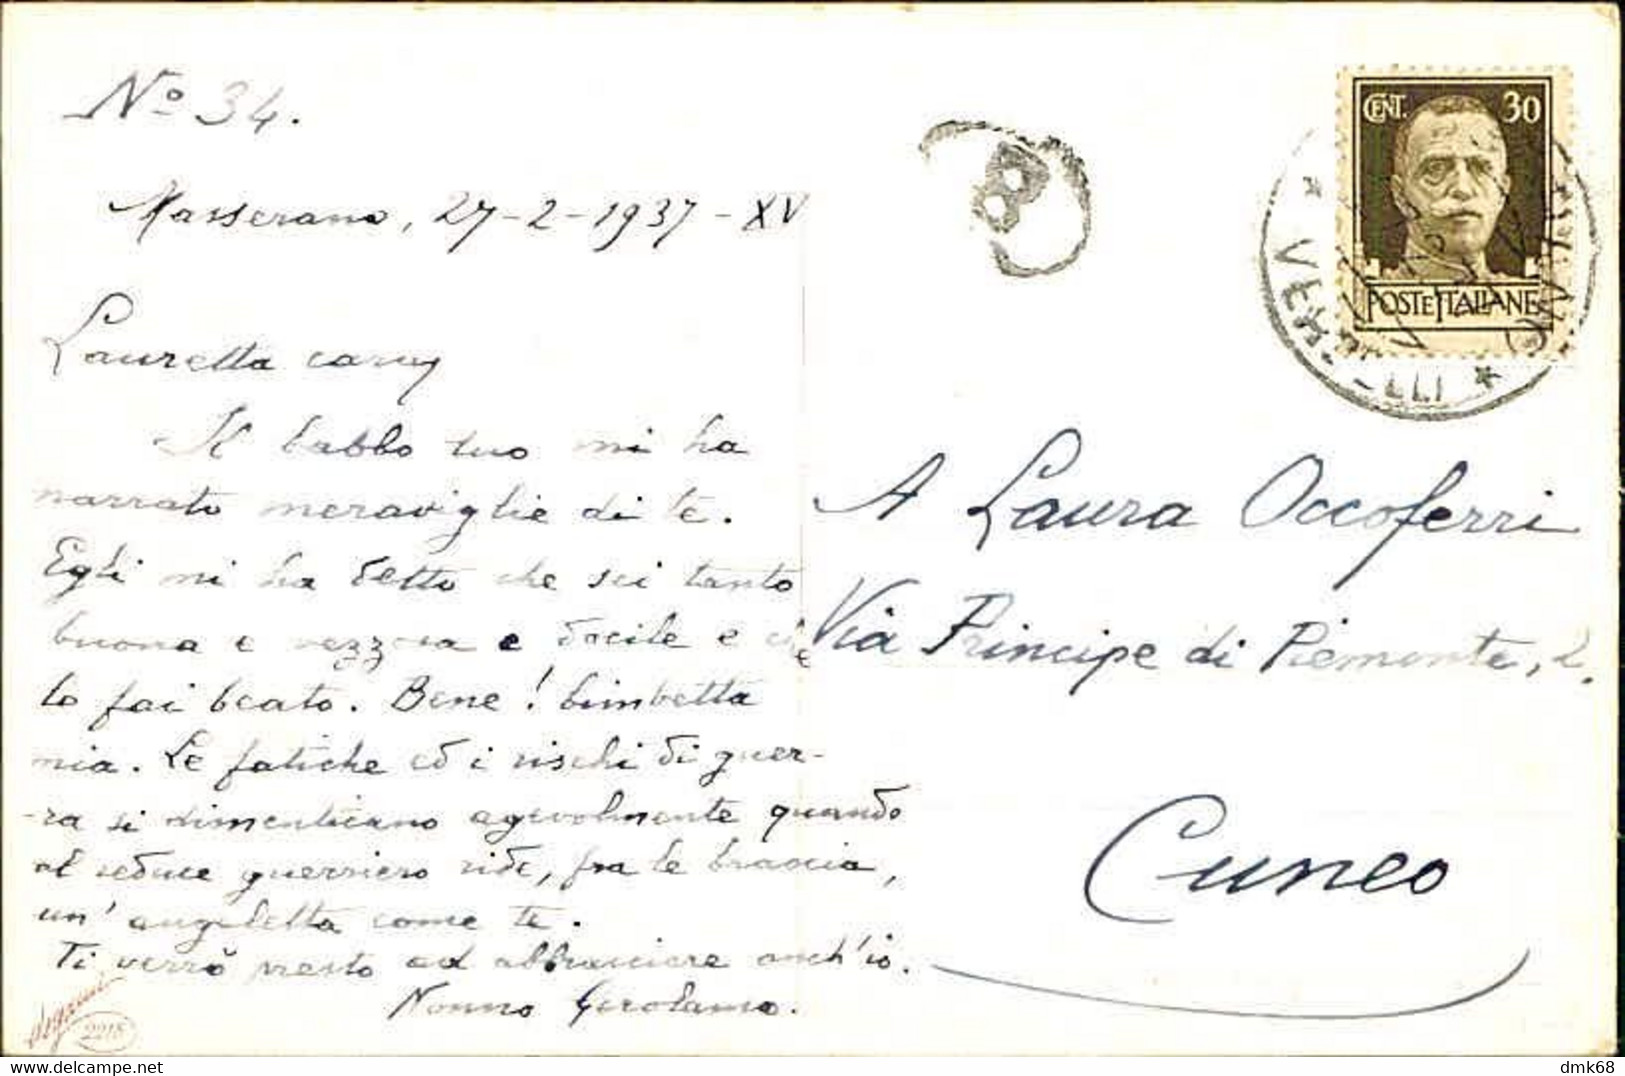 Nº 34.
Masserano, 27-2-1937-XV
Lauretta cara,
Il babbo tuo mi ha
narrato meraviglie di te.
Egli mi ha detto che sei tanto
buona e vezzosa e docile e che
lo fai beato. Bene! bimbetta
mia. Le fatiche ed i rischi di guer-
-ra si dimenticano agevolmente quando
al reduce guerriero ride, fra le braccia,
un' angioletta come te.
Ti verrò presto ad abbracciare anch'io.
Nonno Gerolamo.
2218
CENT. 30
POSTE ITALIANE
A Laura Occoferri
Via Principe di Piemonte, 2.
Cuneo
dmk68